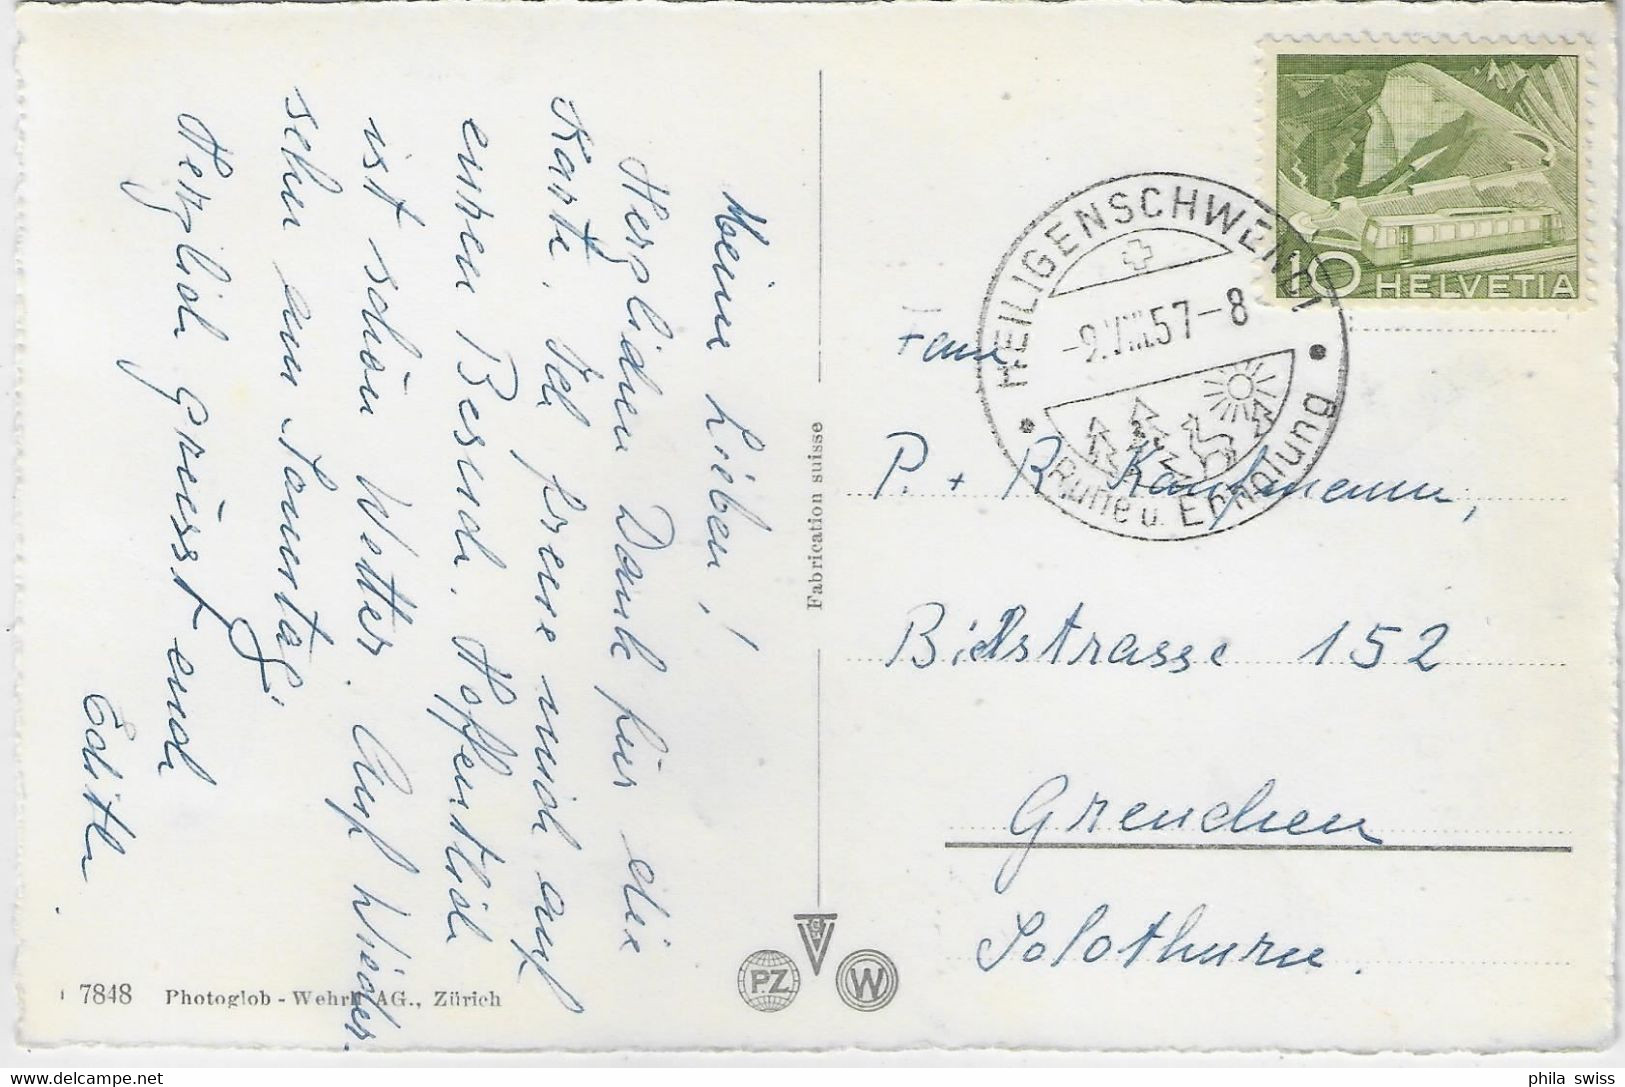 Meine Lieben!
Herzlichen Dank für die
Karte. Ich freue mich auf
euren Besuch. Hoffentlich
ist schön Wetter. Auf Wieder-
sehn am Sonntag.
Herzlich grüsst euch
Edith
7848 Photoglob-Wehrli AG., Zürich
Fabrication suisse
P.Z.
W
HELVETIA
10
HEILIGENSCHWENDI
-9.VIII.57-8
Ruhe u. Erholung
Fam
P. + R Kaufmann,
Bielstrasse 152
Grenchen
Solothurn.
phila swiss